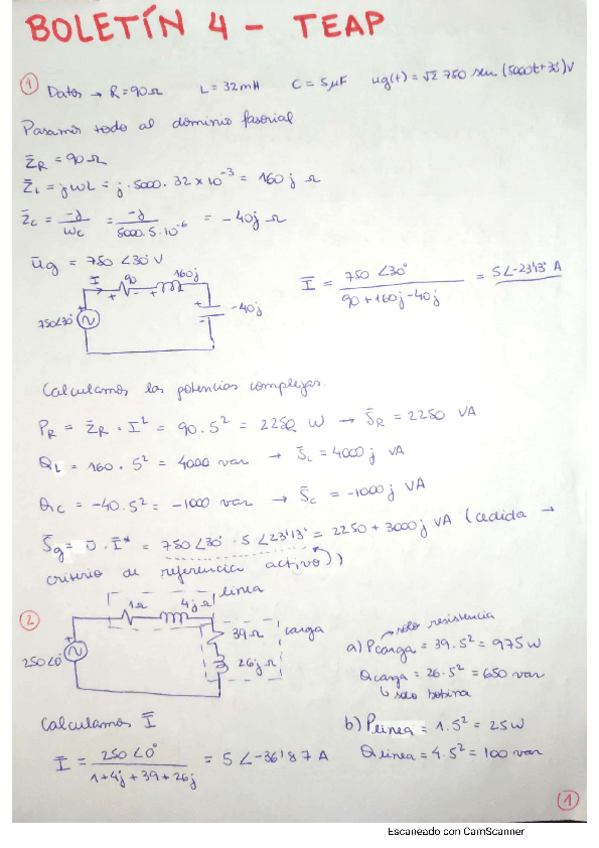 BOLETÍN 4 - TEAP
① Datos → R = 90 Ω   L = 32 mH   C = 5 μF   ug(t) = √2 750 sen (5000t+30°) V
Pasamos todo al dominio fasorial
Z̄R = 90 Ω
Z̄L = jωL = j·5000·32×10⁻³ = 160j Ω
Z̄c = -j/ωc = -j/5000·5·10⁻⁶ = -40j Ω
Ūg = 750 ∠30° V
Ī   90   160j
+ - +
-40j
750∠30°
Ī = 750 ∠30° / 90+160j-40j = 5∠-23'13° A
Calculamos las potencias complejas.
PR = Z̄R · I² = 90·5² = 2250 W → S̄R = 2250 VA
QL = 160·5² = 4000 var → S̄L = 4000j VA
Qc = -40·5² = -1000 var → S̄c = -1000j VA
S̄g = Ū·Ī* = 750∠30° · 5∠23'13° = 2250 + 3000j VA (cedida →
criterio de referencia activo))
② línea
1Ω   4jΩ
39Ω   carga
26jΩ
250∠0°
Calculamos Ī
Ī = 250∠0° / 1+4j+39+26j = 5∠-36'87 A
→ solo resistencia
a) Pcarga = 39·5² = 975 W
Qcarga = 26·5² = 650 var
↳ solo bobina
b) Plinea = 1·5² = 25 W
Qlinea = 4·5² = 100 var
①
Escaneado con CamScanner